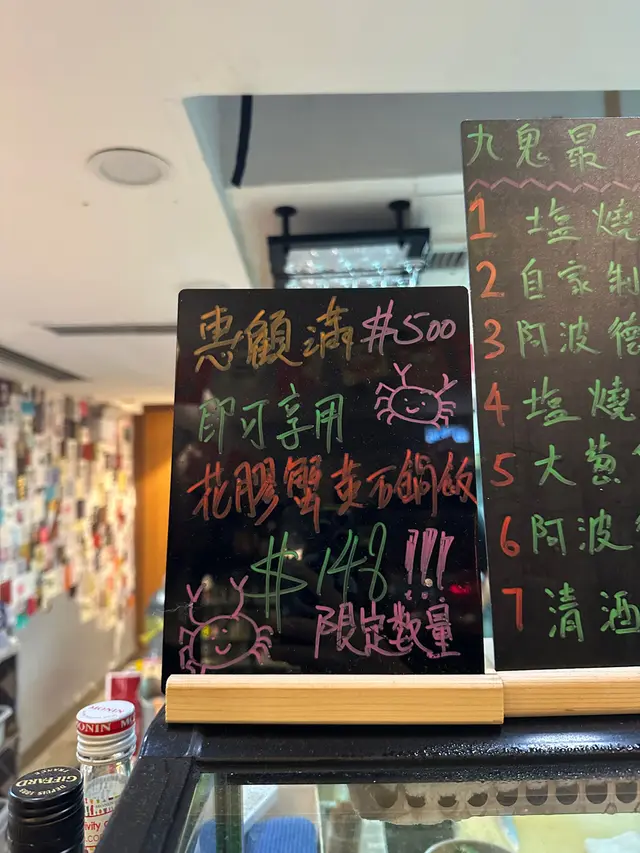 惠顧滿$500
即可享用
花膠蟹黃石鍋飯
$148!!!
限定數量
九鬼最
1 塩燒
2 自家制
3 阿波德
4 塩燒
5 大葱
6 阿波
7 清酒
MONIN
GIFFARD
DEPUIS 1885
FRANCE